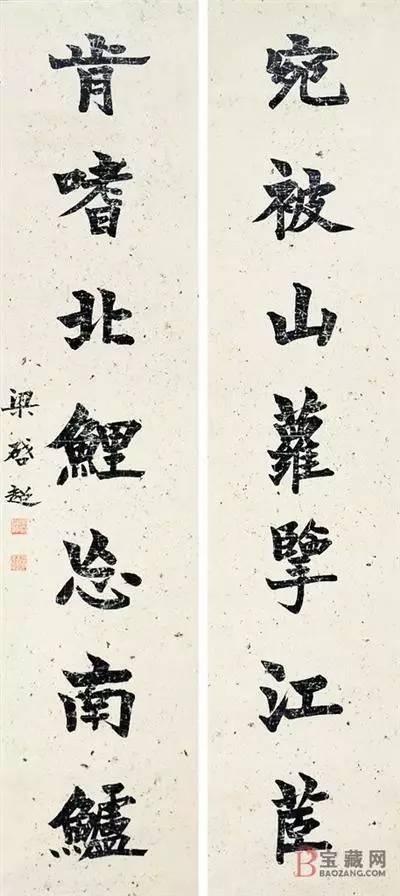 宛被山蘿擥江茝
肯嗜北鯉忘南鱸
梁啓超
宝藏网
BAOZANG.COM